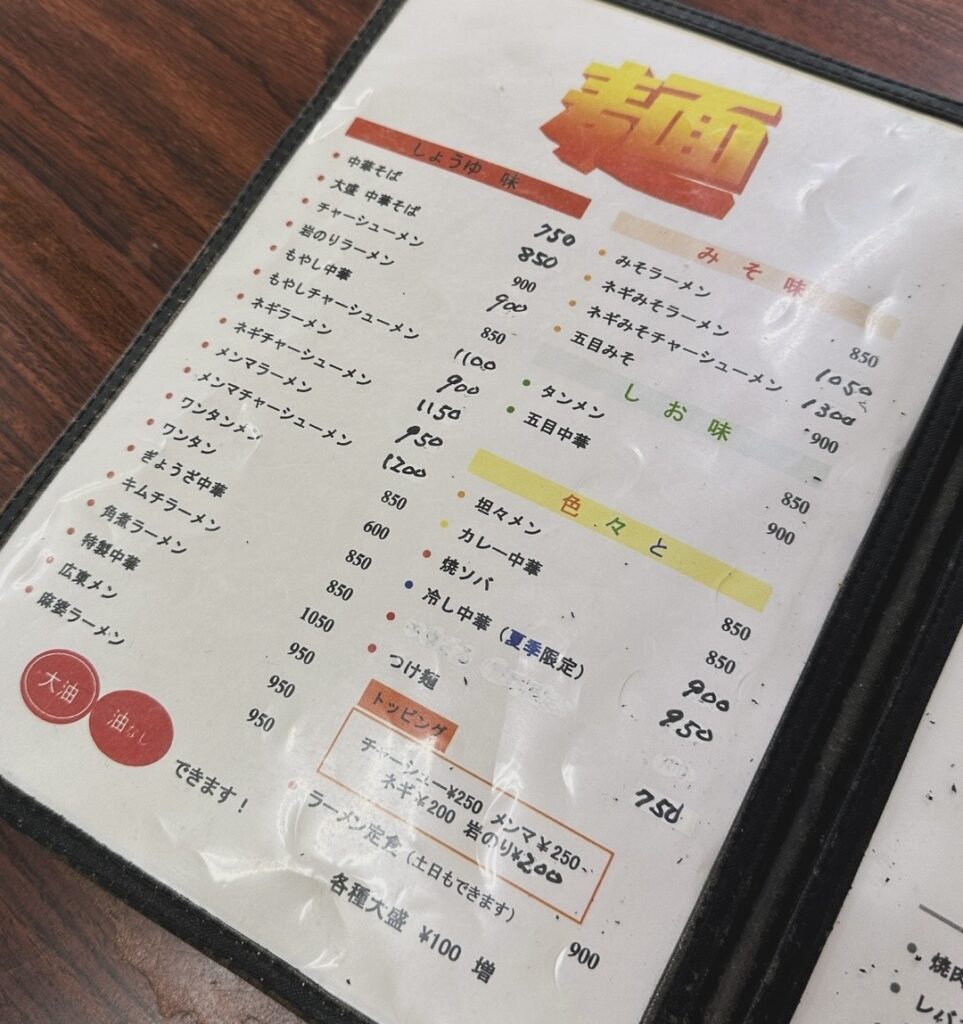 麺
しょうゆ 味
中華そば 750
大盛 中華そば 850
チャーシューメン 900
岩のりラーメン 900
もやし中華 850
もやしチャーシューメン 1100
ネギラーメン 900
ネギチャーシューメン 1150
メンマラーメン 950
メンマチャーシューメン 1200
ワンタンメン 850
ワンタン 600
ぎょうざ中華 850
キムチラーメン 850
角煮ラーメン 1050
特製中華 950
広東メン 950
麻婆ラーメン 950
大油 油なし できます!
みそ味
みそラーメン 850
ネギみそラーメン 1050
ネギみそチャーシューメン 1300
五目みそ 900
しお味
タンメン 850
五目中華 900
色々と
坦々メン 850
カレー中華 850
焼ソバ 900
冷し中華(夏季限定) 950
つけ麺 750
トッピング
チャーシュー¥250 メンマ¥250
ネギ¥200 岩のり¥200
ラーメン定食(土日もできます) 900
各種大盛 ¥100 増
焼肉
レバ